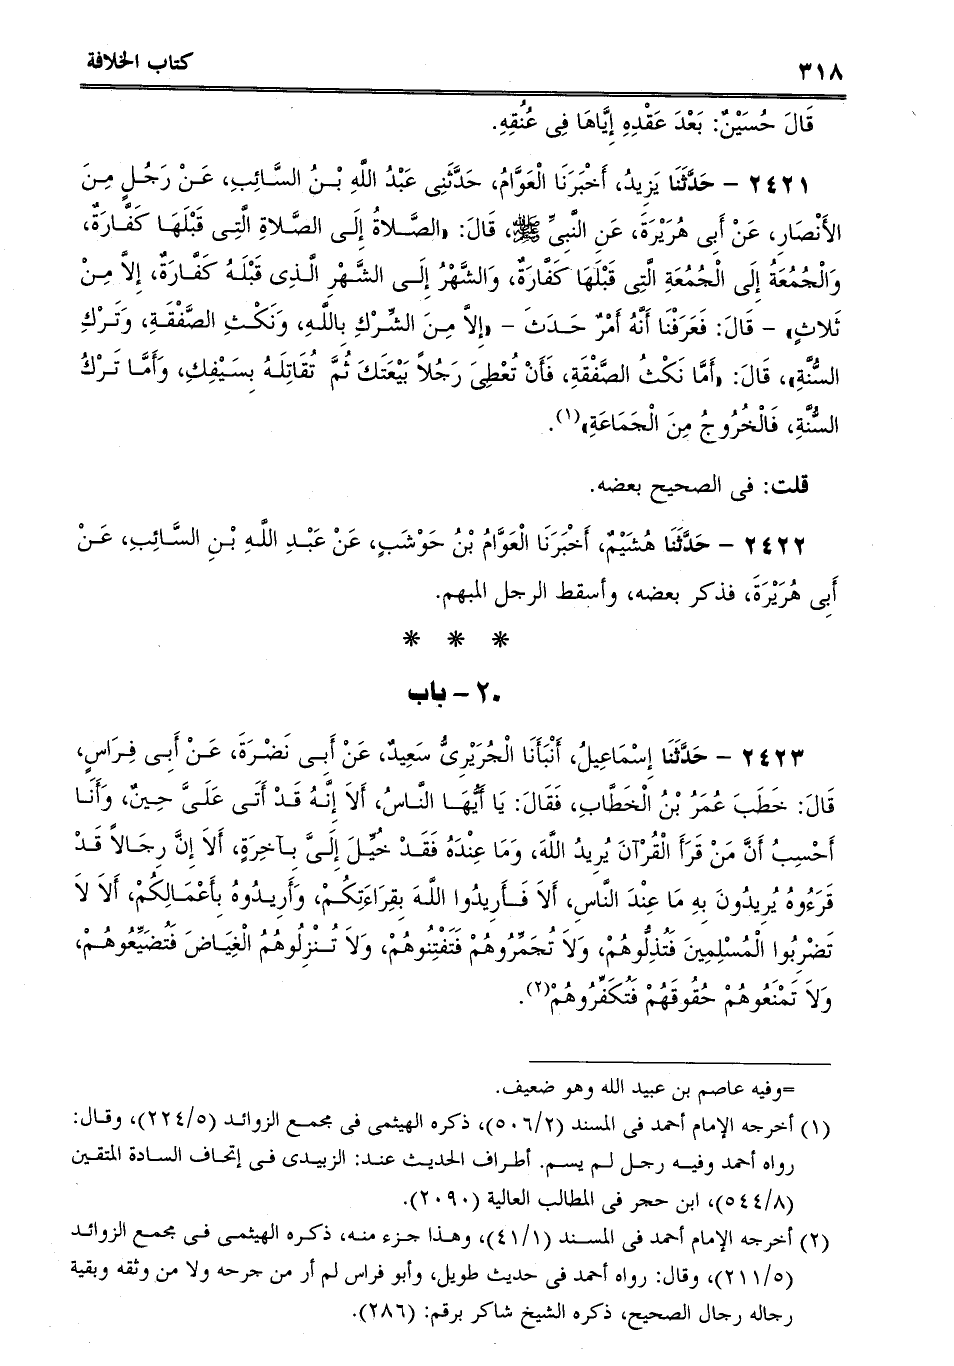 ٣١٨ كتاب الخلافة
قَالَ حُسَيْنٌ: بَعْدَ عَقْدِهِ إِيَّاهَا فِى عُنُقِهِ.
٢٤٢١ – حَدَّثَنَا يَزِيدُ، أَخْبَرَنَا الْعَوَّامُ، حَدَّثَنِى عَبْدُ اللَّهِ بْنُ السَّائِبِ، عَنْ رَجُلٍ مِنَ
الأَنْصَارِ، عَنْ أَبِى هُرَيْرَةَ، عَنِ النَّبِىِّ ﷺ، قَالَ: «الصَّلاةُ إِلَى الصَّلاةِ الَّتِى قَبْلَهَا كَفَّارَةٌ،
وَالْجُمُعَةُ إِلَى الْجُمُعَةِ الَّتِى قَبْلَهَا كَفَّارَةٌ، وَالشَّهْرُ إِلَى الشَّهْرِ الَّذِى قَبْلَهُ كَفَّارَةٌ، إِلاَّ مِنْ
ثَلاثٍ» – قَالَ: فَعَرَفْنَا أَنَّهُ أَمْرٌ حَدَثَ – «إِلاَّ مِنَ الشِّرْكِ بِاللَّهِ، وَنَكْثِ الصَّفْقَةِ، وَتَرْكِ
السُّنَّةِ»، قَالَ: «أَمَّا نَكْثُ الصَّفْقَةِ، فَأَنْ تُعْطِىَ رَجُلاً بَيْعَتَكَ ثُمَّ تُقَاتِلَهُ بِسَيْفِكِ، وَأَمَّا تَرْكُ
السُّنَّةِ، فَالْخُرُوجُ مِنَ الْجَمَاعَةِ»(١).
قلت: فى الصحيح بعضه.
٢٤٢٢ – حَدَّثَنَا هُشَيْمٌ، أَخْبَرَنَا الْعَوَّامُ بْنُ حَوْشَبٍ، عَنْ عَبْدِ اللَّهِ بْنِ السَّائِبِ، عَنْ
أَبِى هُرَيْرَةَ، فذكر بعضه، وأسقط الرجل المبهم.
* * *
٢٠ – باب
٢٤٢٣ – حَدَّثَنَا إِسْمَاعِيلُ، أَنْبَأَنَا الْجُرَيْرِىُّ سَعِيدٌ، عَنْ أَبِى نَضْرَةَ، عَنْ أَبِى فِرَاسٍ،
قَالَ: خَطَبَ عُمَرُ بْنُ الْخَطَّابِ، فَقَالَ: يَا أَيُّهَا النَّاسُ، أَلاَ إِنَّهُ قَدْ أَتَى عَلَىَّ حِينٌ، وَأَنَا
أَحْسِبُ أَنَّ مَنْ قَرَأَ الْقُرْآنَ يُرِيدُ اللَّهَ، وَمَا عِنْدَهُ فَقَدْ خُيِّلَ إِلَىَّ بِآخِرَةٍ، أَلاَ إِنَّ رِجَالاً قَدْ
قَرَءُوهُ يُرِيدُونَ بِهِ مَا عِنْدَ النَّاسِ، أَلاَ فَأَرِيدُوا اللَّهَ بِقِرَاءَتِكُمْ، وَأَرِيدُوهُ بِأَعْمَالِكُمْ، أَلاَ لاَ
تَضْرِبُوا الْمُسْلِمِينَ فَتُذِلُّوهُمْ، وَلاَ تُجَمِّرُوهُمْ فَتَفْتِنُوهُمْ، وَلاَ تُنْزِلُوهُمُ الْغِيَاضَ فَتُضَيِّعُوهُمْ،
وَلاَ تَمْنَعُوهُمْ حُقُوقَهُمْ فَتُكَفِّرُوهُمْ(٢).
=وفيه عاصم بن عبيد الله وهو ضعيف.
(١) أخرجه الإمام أحمد فى المسند (٥٠٦/٢)، ذكره الهيثمى فى مجمع الزوائد (٢٢٤/٥)، وقال:
رواه أحمد وفيه رجل لم يسم. أطراف الحديث عند: الزبيدى فى إتحاف السادة المتقين
(٥٤٤/٨)، ابن حجر فى المطالب العالية (٢٠٩٠).
(٢) أخرجه الإمام أحمد فى المسند (٤١/١)، وهذا جزء منه، ذكره الهيثمى فى مجمع الزوائد
(٢١١/٥)، وقال: رواه أحمد فى حديث طويل، وأبو فراس لم أر من جرحه ولا من وثقه وبقية
رجاله رجال الصحيح، ذكره الشيخ شاكر برقم: (٢٨٦).